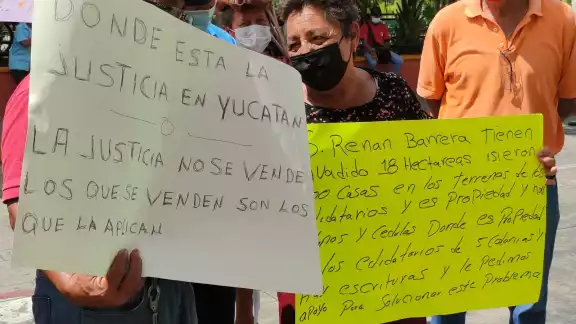 DONDE ESTA LA
JUSTICIA EN YUCATAN
O
LA JUSTICIA NO SE VENDE
LOS QUE SE VENDEN SON LOS
QUE LA APLICAN
Renan Barrera Tienen
vadido 18 Hectareas isieron
Casas en los terrenos de los
y es Propiedad y hay
y Cedulas Donde es Propiedad
los edidatarios de 5 Colonias y
hay escrituras y le Pedimos
apoyo Para Solucionar este Problema